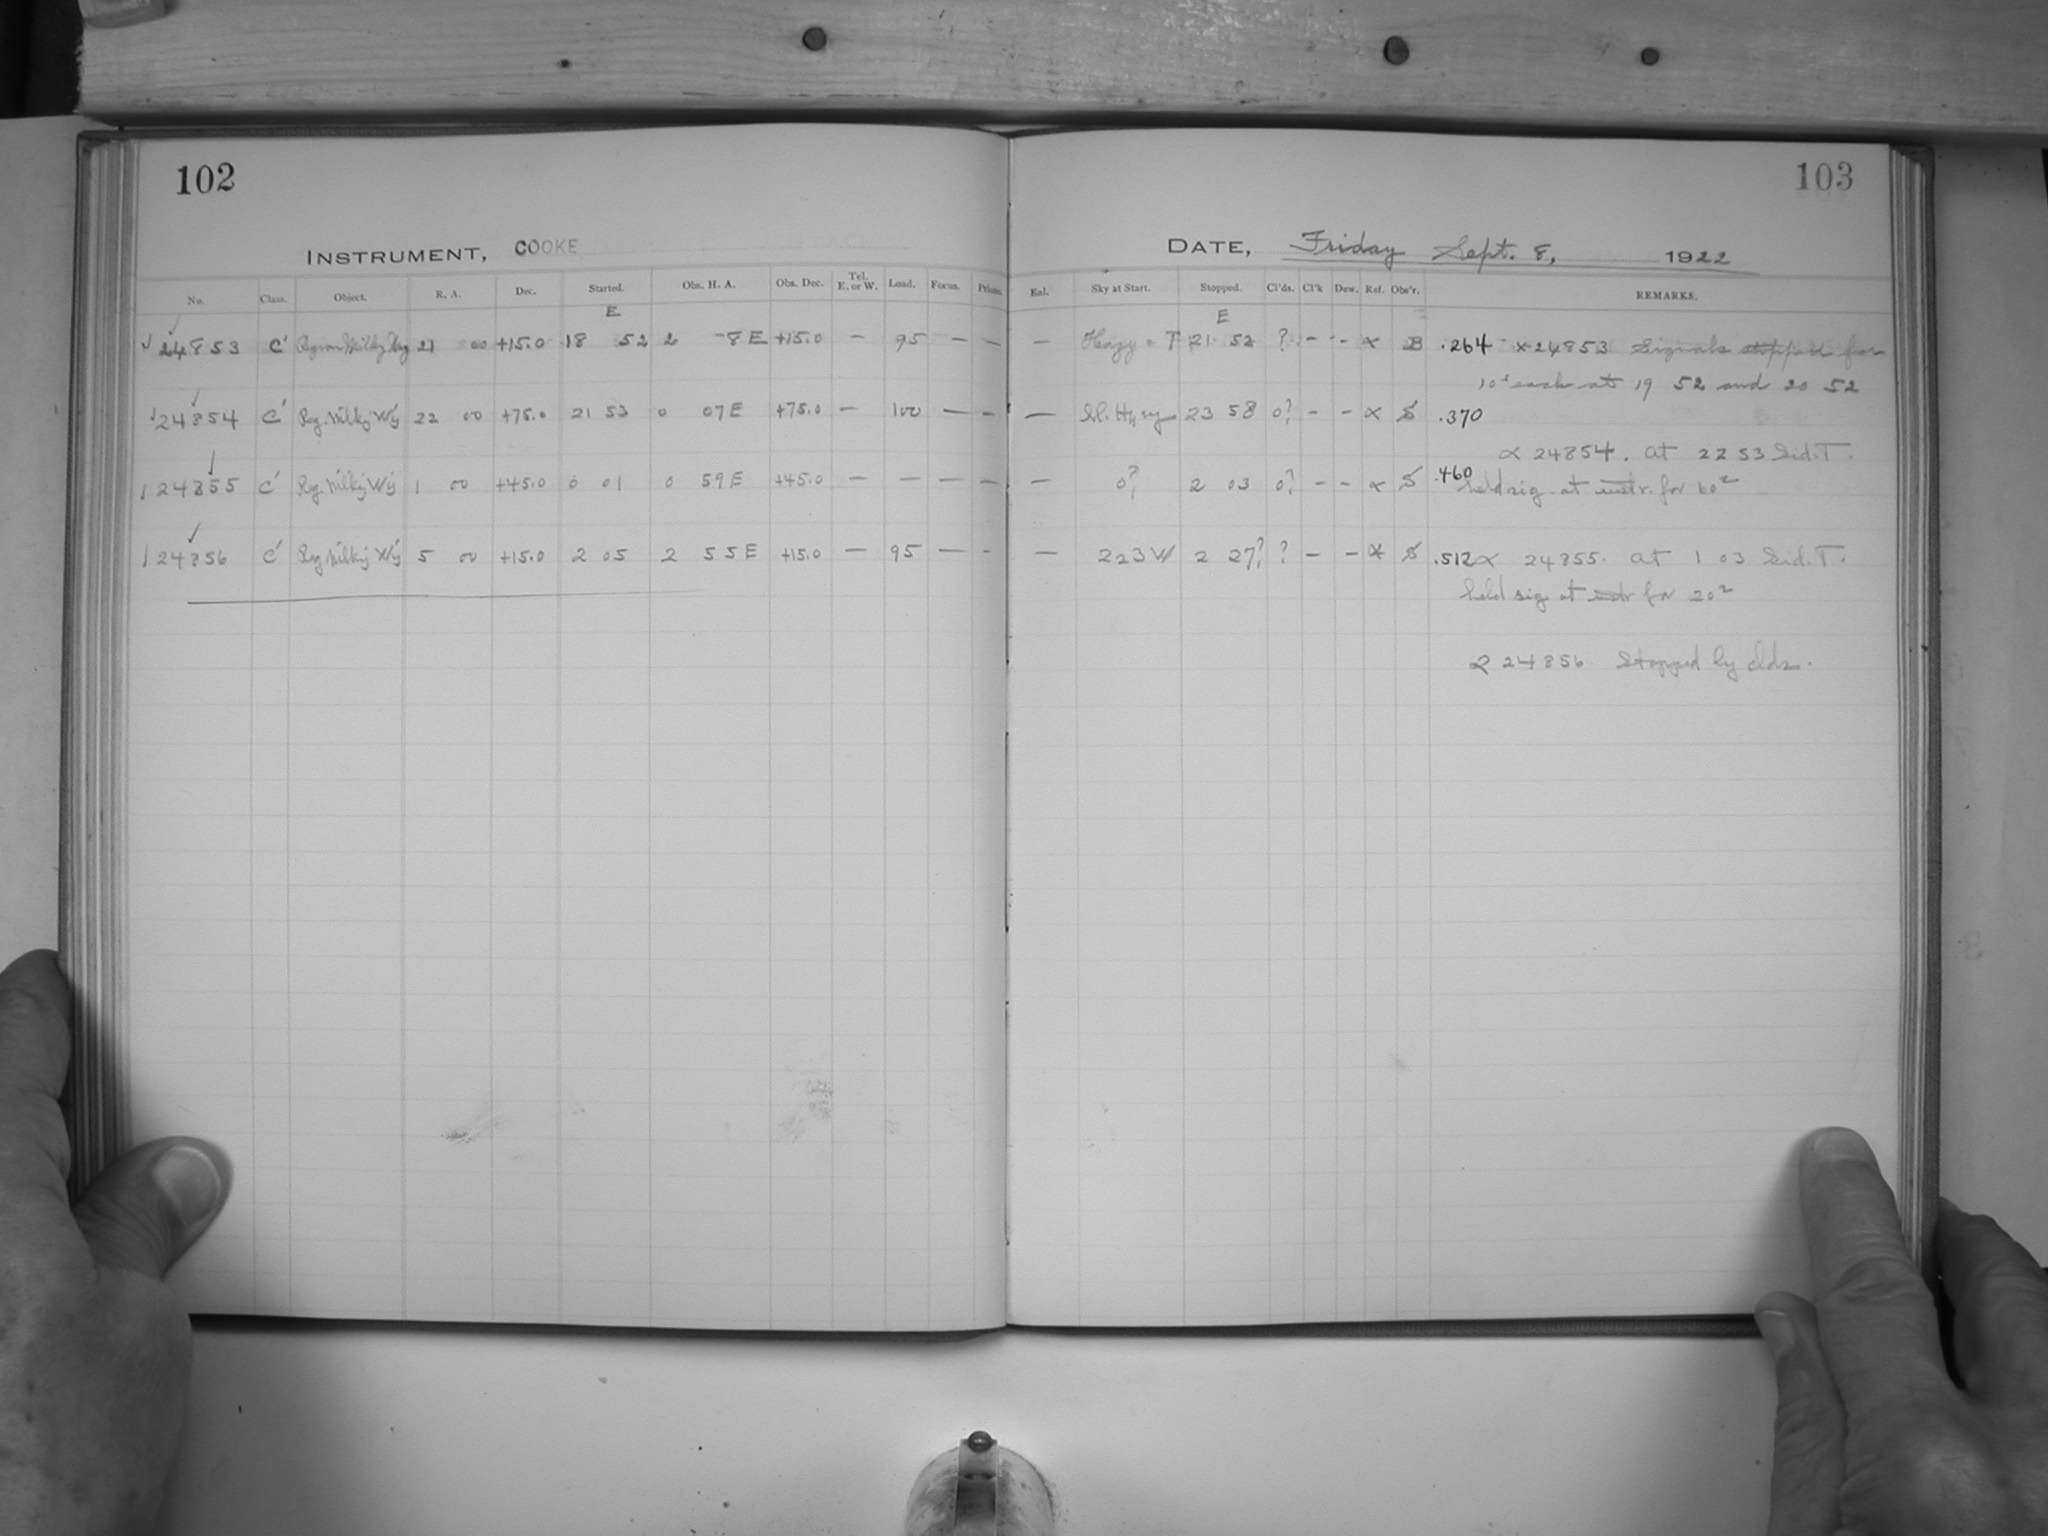 102
103
INSTRUMENT, COOKE
DATE, Friday Sept. 8, 1922
No. Class. Object. R. A. Dec. Started. Obs. H. A. Obs. Dec. Tel. E. or W. Load. Focus. Prisms. Enl. Sky at Start. Stopped. Cl'ds. Cl'k Dew. Ref. Obs'r. REMARKS.
E E
✓ 24853 C' Region Milky Way 21 00 +15.0 18 52 2 -8 E +15.0 — 95 — — — Hazy + T 21 52 ? - - α B .264 α 24853 Signals stopped for
10s each at 19 52 and 20 52
✓ 24854 C' Reg. Milky W'y 22 00 +75.0 21 53 0 07 E +75.0 — 100 — — — Sl. Hazy 23 58 0? - - α S .370
α 24854. at 22 53 Sid. T.
24855 C' Reg. Milky W'y 1 00 +45.0 0 01 0 59 E +45.0 — — — — — 0? 2 03 0? - - α S .460 held sig. at instr. for 60s
24856 C' Reg Milky W'y 5 00 +15.0 2 05 2 55 E +15.0 — 95 — - — 223W 2 27? ? - - α S .512 α 24855. at 1 03 Sid. T.
held sig at instr for 20s
α 24856 Stopped by clds.